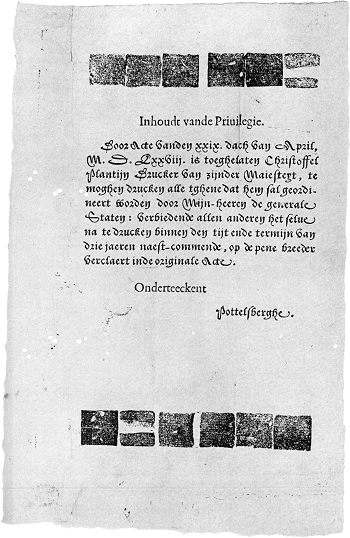 Inhoudt vande Priuilegie.
Door Acte vanden xxix. dach van April,
M. D. Lxxviij. is toeghelaten Christoffel
Plantijn Drucker van zijnder Maiesteyt, te
moghen drucken alle tghene dat hem sal geordi-
neert worden door Mijn-heeren de generale
Staten: verbiedende allen anderen het selue
na te drucken binnen den tijt ende termijn van
drie jaeren naest-commende, op de pene breeder
verclaert inde originale Acte.
Onderteeckent
Pottelsberghe.